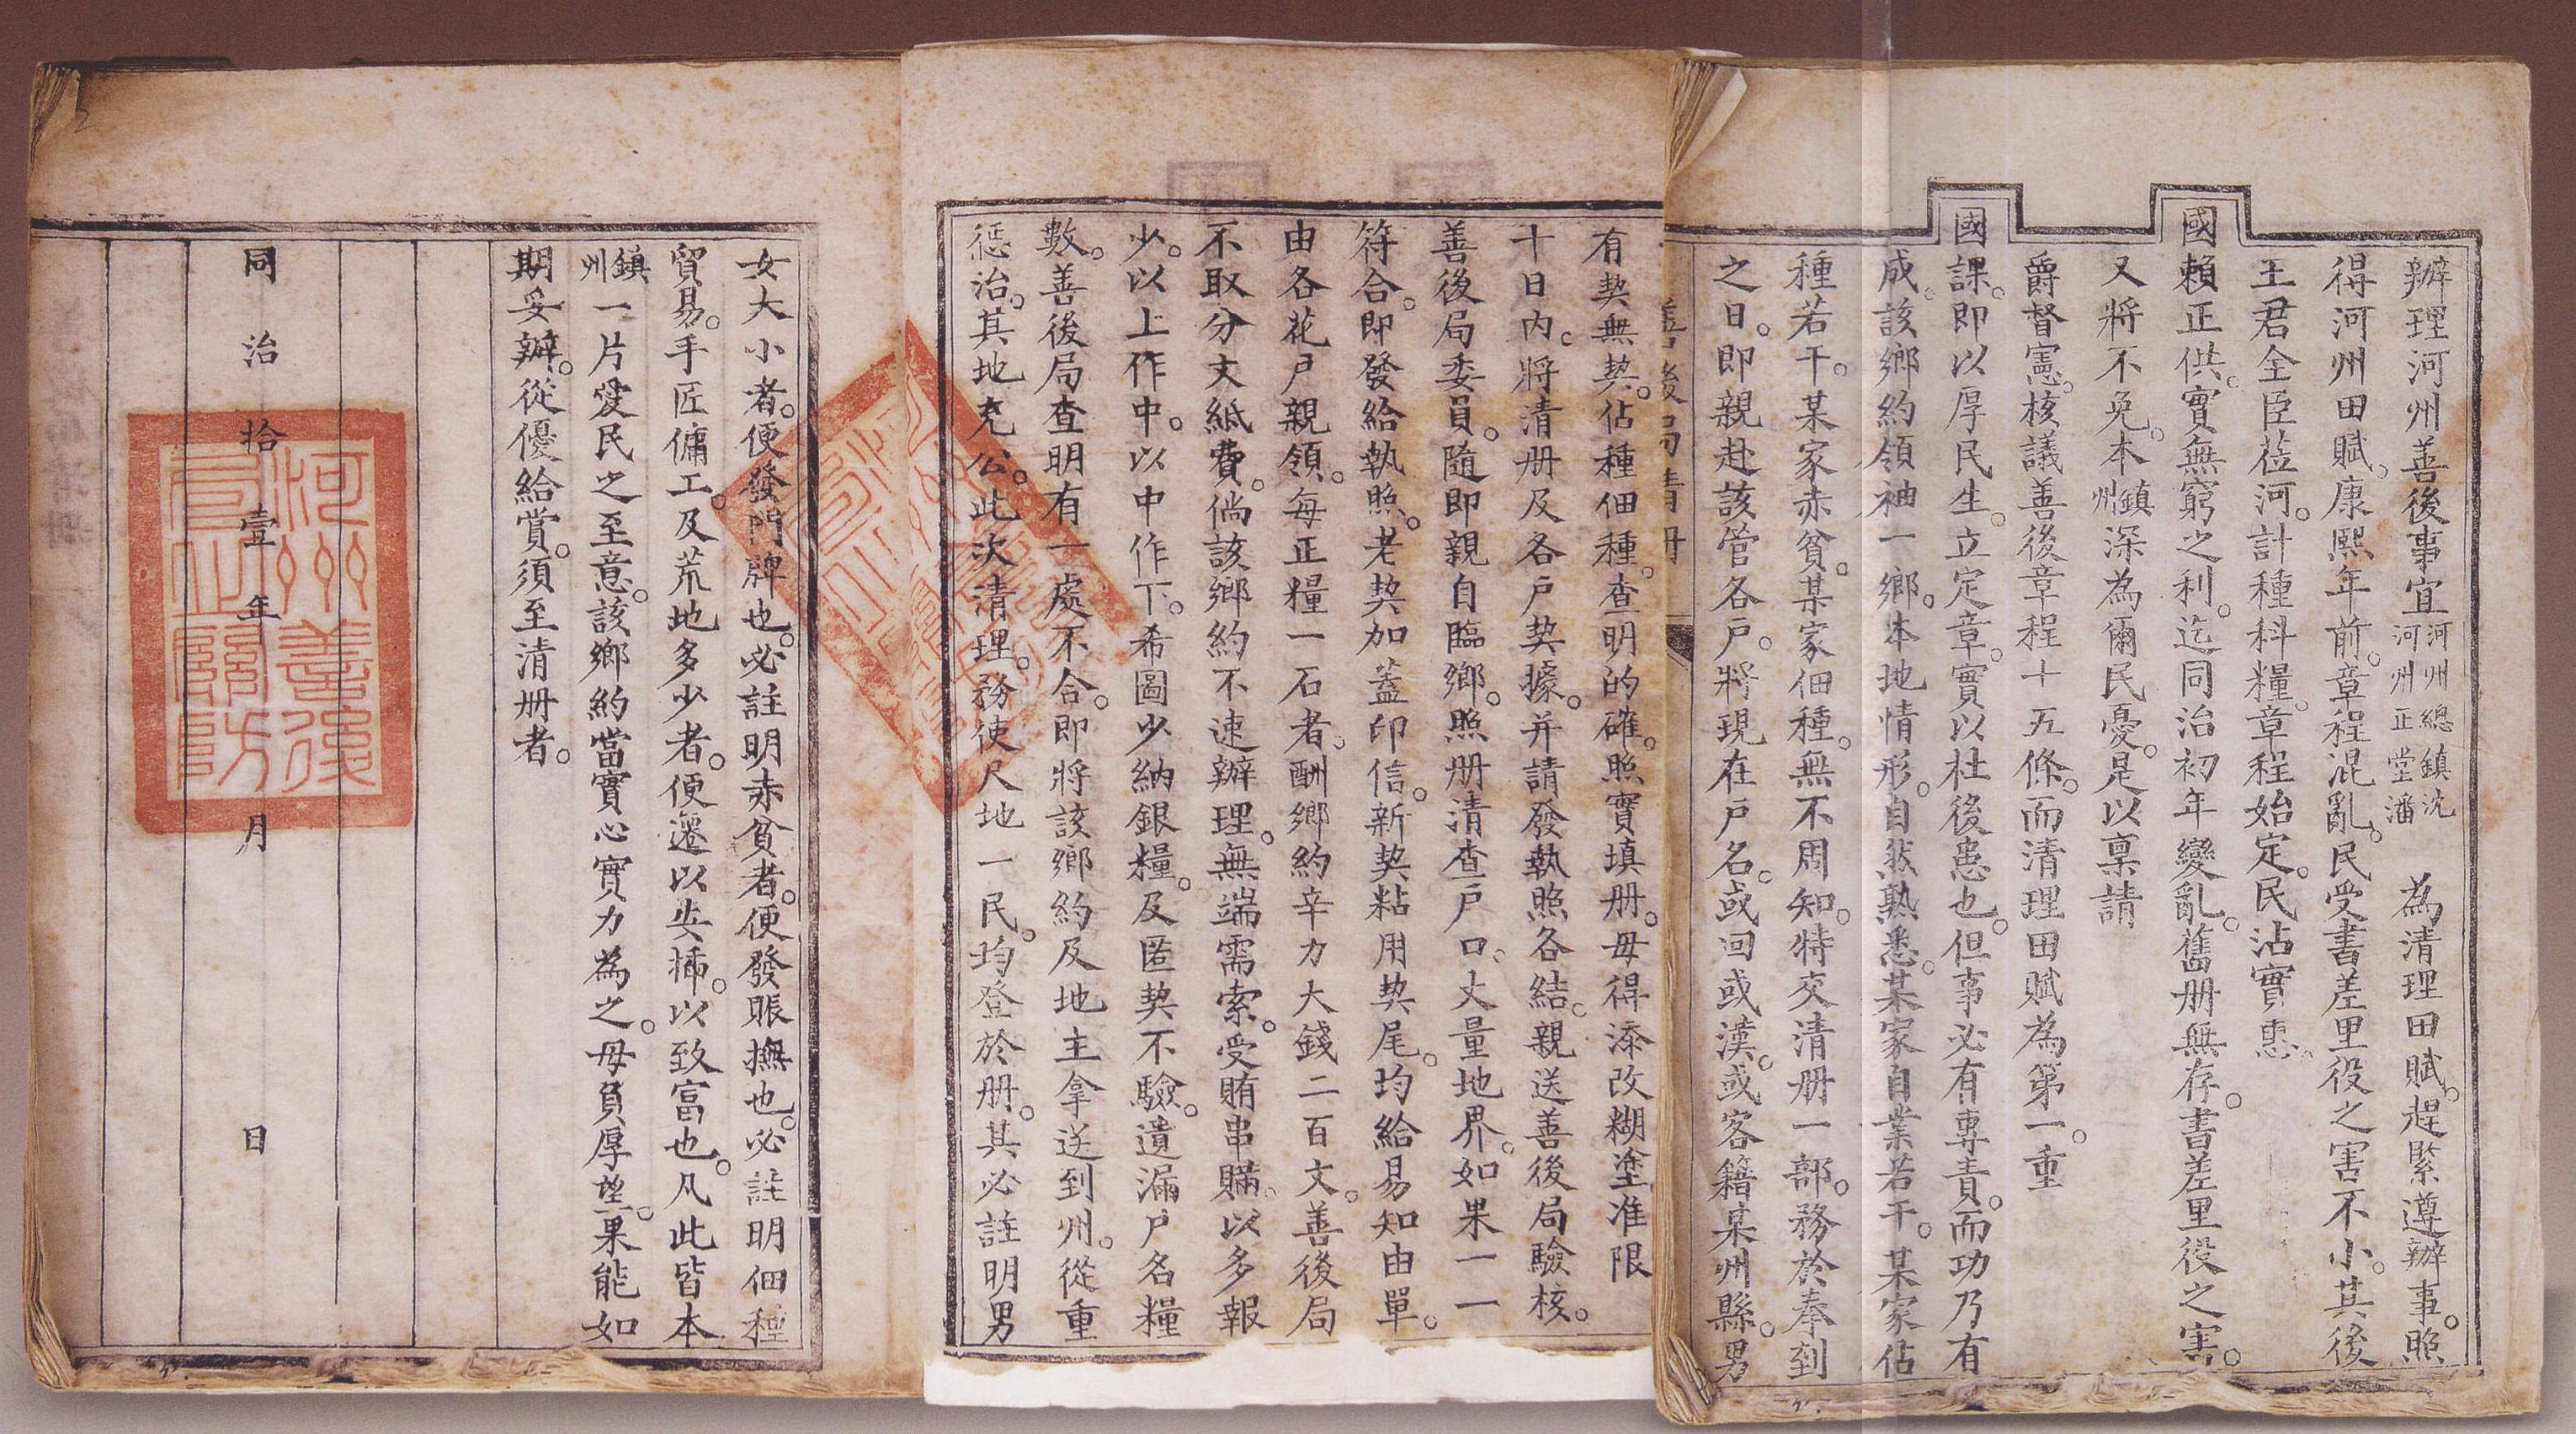 辦理河州善後事宜河州總鎮沈河州正堂潘 為清理田賦。趕緊遵辦事。照
得河州田賦。康熙年前。章程混亂。民受書差里役之害不小。其後
王君全臣莅河。計種科糧。章程始定。民沾實惠。
國賴正供。實無窮之利。迄同治初年變亂。舊册無存。書差里役之害。
又將不免。本鎮州深為爾民憂。是以稟請
爵督憲。核議善後章程十五條。而清理田賦為第一。重
國課。即以厚民生。立定章。實以杜後患也。但事必有專責。而功乃有
成。該鄉約領袖一鄉。本地情形。自然熟悉。某家自業若干。某家佔
種若干。某家赤貧。某家佃種。無不周知。特交清册一部。務於奉到
之日。即親赴該管各戶。將現在戶名。或回或漢。或客籍某州縣。男
善後局清册
有契無契。佔種佃種。查明的確。照實填册。毋得添改糊塗。准限
十日內。將清册及各戶契據。并請發執照各結。親送善後局驗核。
善後局委員。隨即親自臨鄉。照册清查戶口。丈量地界。如果一一
符合。即發給執照。老契加蓋印信。新契粘用契尾。均給易知由單。
由各花戶親領。每正糧一石者。酬鄉約辛力大錢二百文。善後局
不取分文紙費。倘該鄉約不速辦理。無端需索。受賄串瞞。以多報
少。以上作中。以中作下。希圖少納銀糧。及匿契不驗。遺漏戶名糧
數。善後局查明有一處不合。即將該鄉約及地主拿送到州。從重
懲治。其地充公。此次清理。務使尺地一民。均登於册。其必註明男
女大小者。便發門牌也。必註明赤貧者。便發賑撫也。必註明佃種
貿易。手匠傭工。及荒地多少者。便遷以安插。以致富也。凡此皆本
鎮州一片愛民之至意。該鄉約當實心實力為之。毋負厚望。果能如
期妥辦。從優給賞。須至清册者。
同治拾壹年 月 日
河州善後